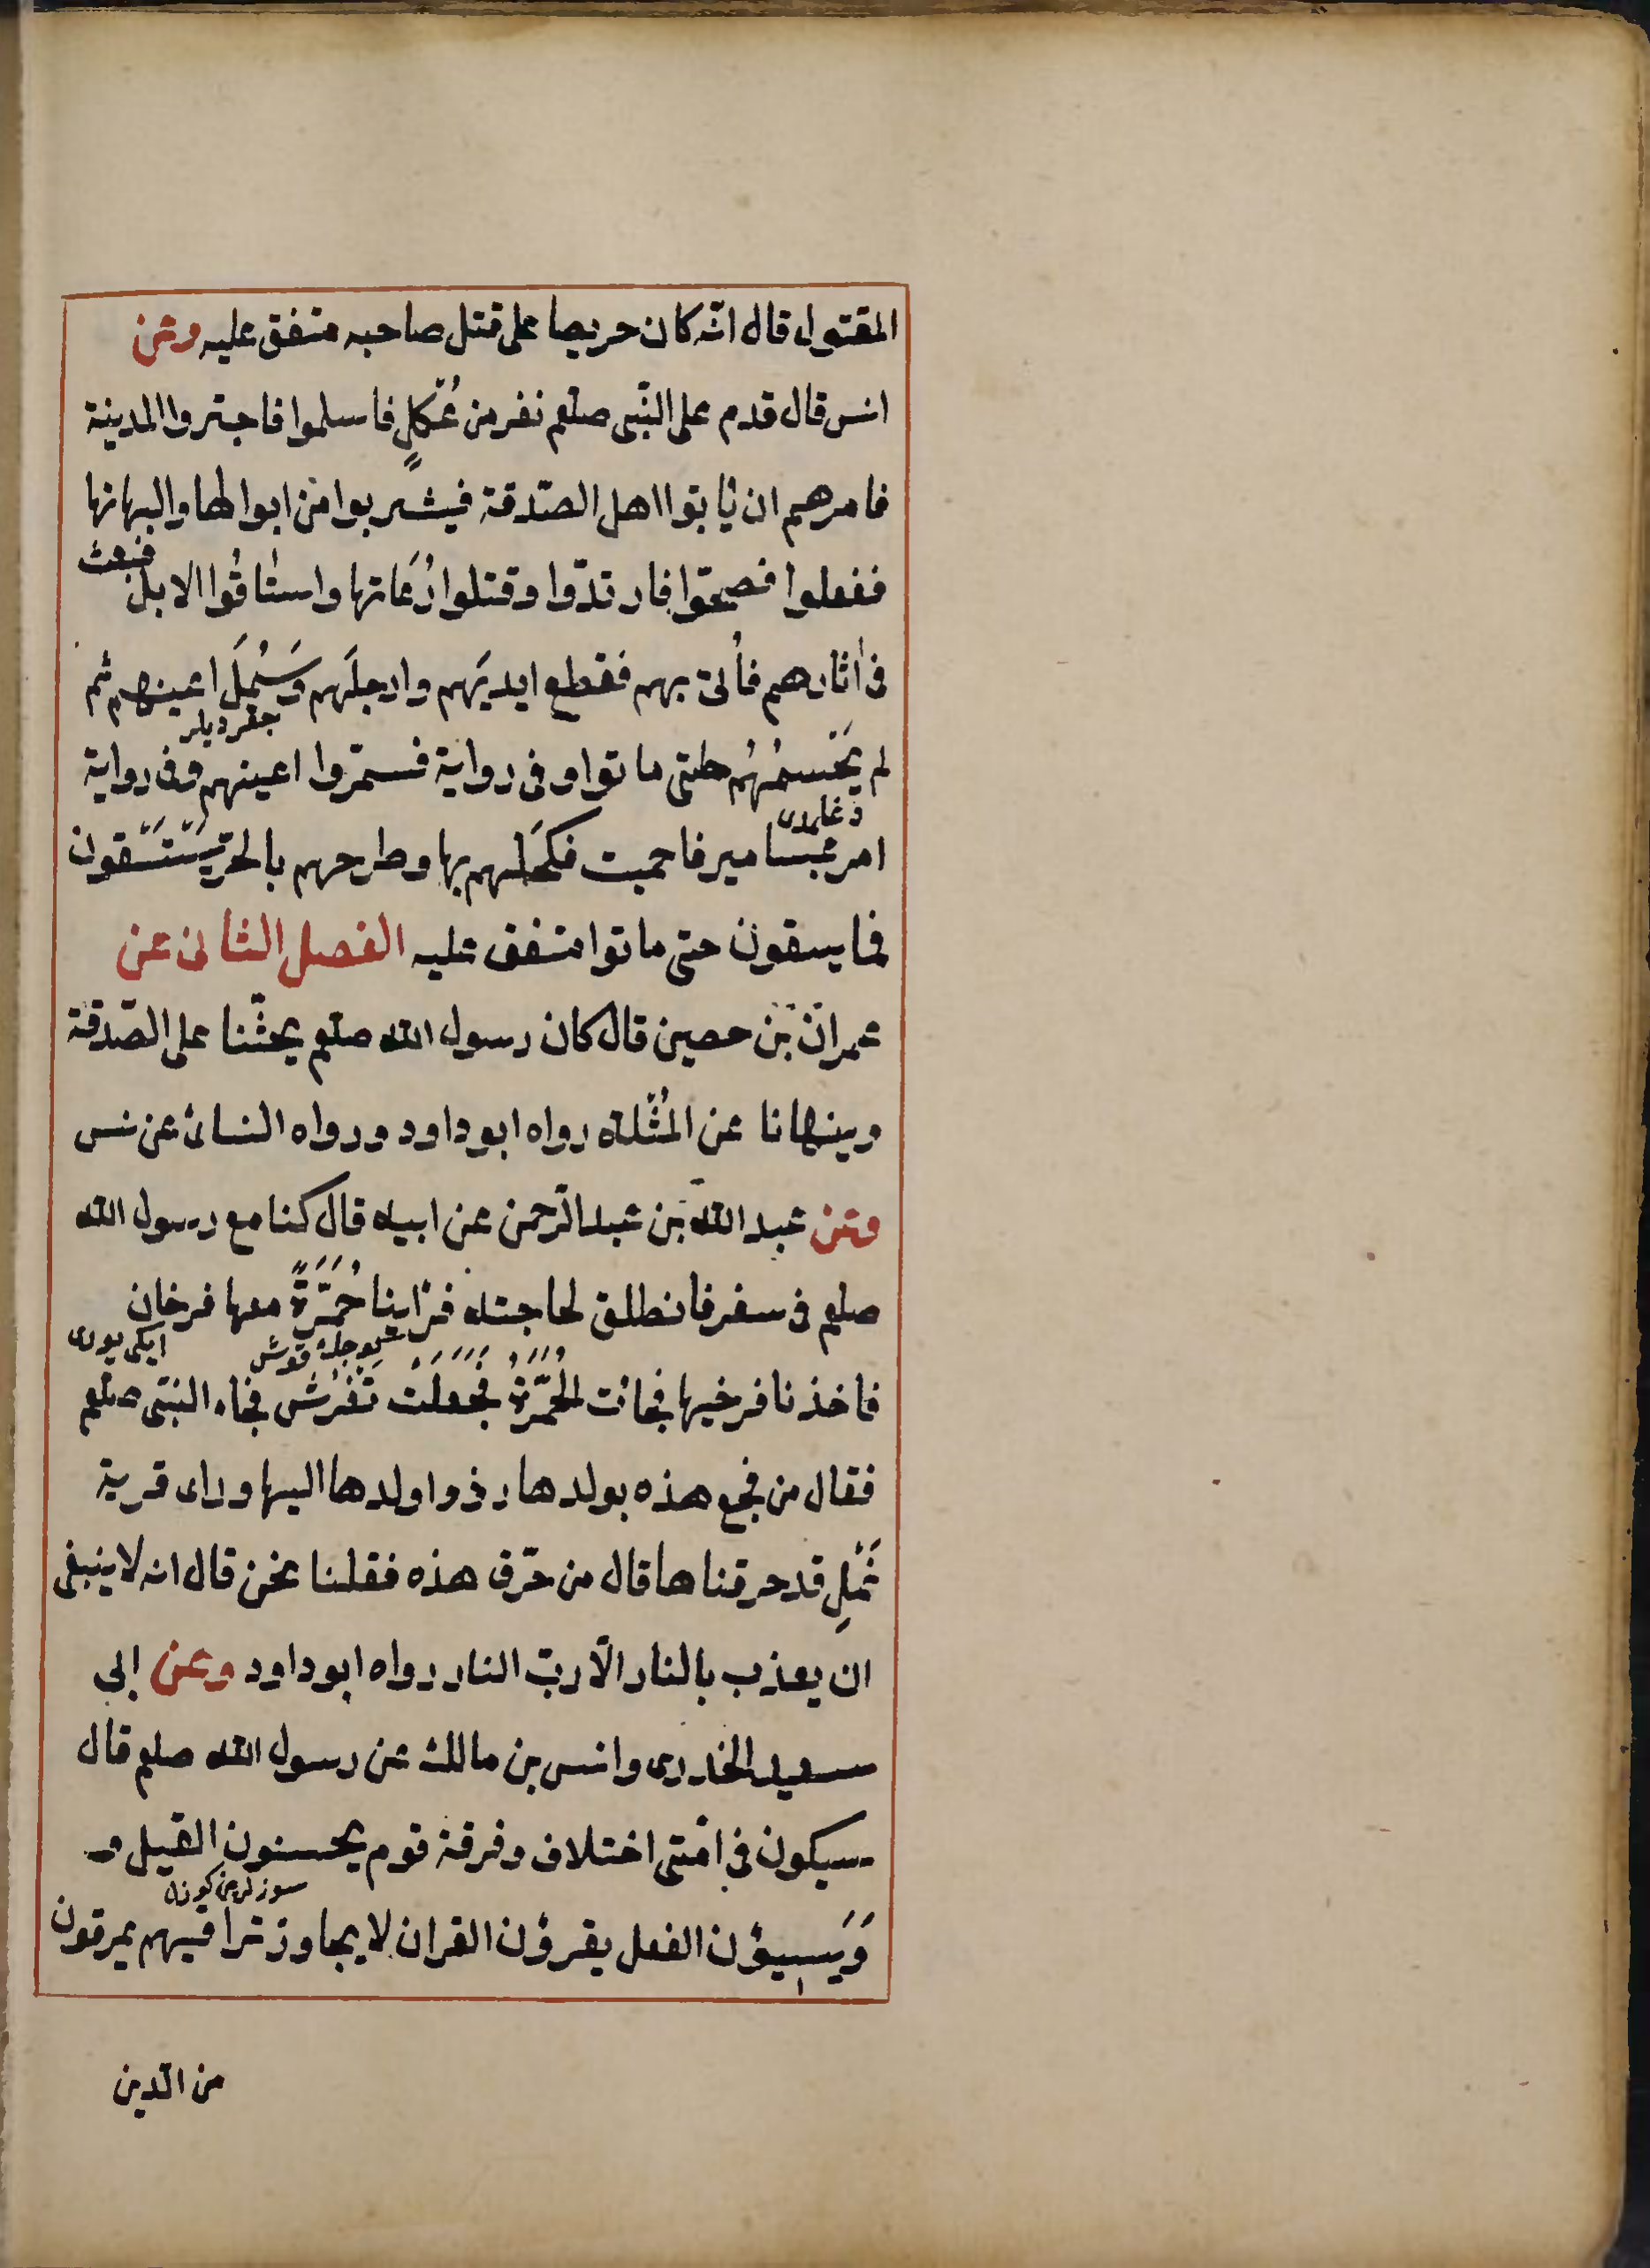 المقتول قال انّه كان حريصا على قتل صاحبه متفق عليه وعن
انس قال قدم على النّبى صلعم نفر من عُكلٍ فاسلموا فاجتروا المدينة
فامرهم ان ياتوا اهل الصّدقة فيشربوا من ابوالها والبهانها
ففعلوا فصحّوا فارتدّوا وقتلوا رُعَاتها واستاقُوا الابل فبعث
فى اثارهم فأُتى بهم فقطع ايديَهم وارجلَهم وَسَُملَ اعينهم ثم
جقرديلر
لم يَحْسمُهُم حتى ماتوا وفى رواية فسمّروا اعينهم وفى رواية
امر بمسامير فاحميت فكحَلهم بها وطرحهم بالحرّة يَسْتَسْقون
فما يسقون حتى ماتوا متفق عليه الفصل الثانى عن
عمران بن حصين قال كان رسول الله صلعم يحثّنا على الصّدقة
وينهانا عن المُثْلة رواه ابو داود ورواه النسائ عن نس
وعن عبد الله بن عبد الرّحمن عن ابيه قال كنا مع رسول الله
صلعم فى سفر فانطلق لحاجته فراينا حُمَّرَةً معها فرخان
قوش
ايكى يورى
فاخذنا فرخيها فجائت الحُمَّرَةُ فجُعلَت تَفْرُش فجاء النبّى صلعم
فقال من فجع هذه بولدها ردّوا ولدها اليها وراى قرية
نَمْلٍ قد حرقناها قال من حرّق هذه فقلنا نحن قال انه لا ينبغى
ان يعذب بالنار الّا ربّ النار رواه ابو داود وعن ابى
سعيد الخدرى وانس بن مالك عن رسول الله صلعم قال
سيكون فى امّتى اختلاف وفرقة قوم يحسنون القيل و
وَيَسيؤن الفعل يقرؤن القران لا يجاوز تراقيهم يمرقون
من الدّين